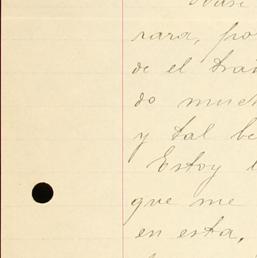 rara, po
de el tra
do much
y tal be
Estoy
que me
en esta,